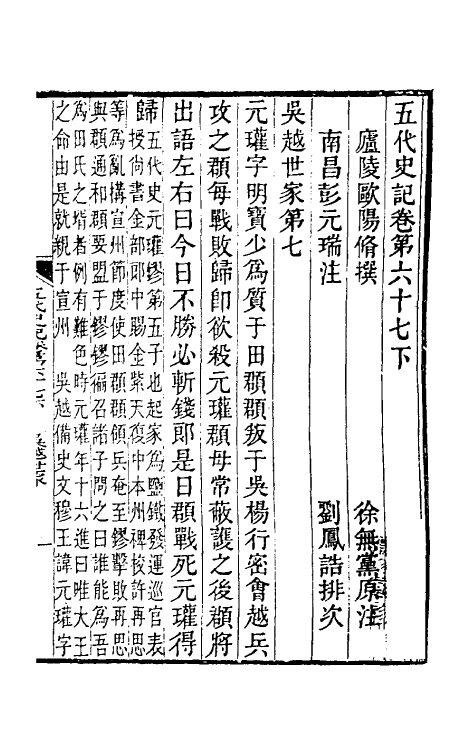 五代史記卷第六十七下
廬陵歐陽脩撰　徐無黨原注
南昌彭元瑞注　劉鳳誥排次
吳越世家第七
元瓘字明寶少爲質于田頵頵叛于吳楊行密會越兵
攻之頵每戰敗歸卽欲殺元瓘頵母常蔽護之後頵將
出語左右曰今日不勝必斬錢郞是日頵戰死元瓘得
歸
五代史元瓘鏐第五子也起家爲鹽鐵發運巡官表
授尙書金部郎中賜金紫天復中本州裨校許再思
等爲亂構宣州節度使田頵頵領兵奄至鏐擊敗再思
與頵通和頵要盟于鏐鏐徧召諸子問之曰誰能爲吾
爲田氏之壻者例有難色時元瓘年十六進曰唯大王
之命由是就親于宣州　吳越備史文穆王諱元瓘字
一